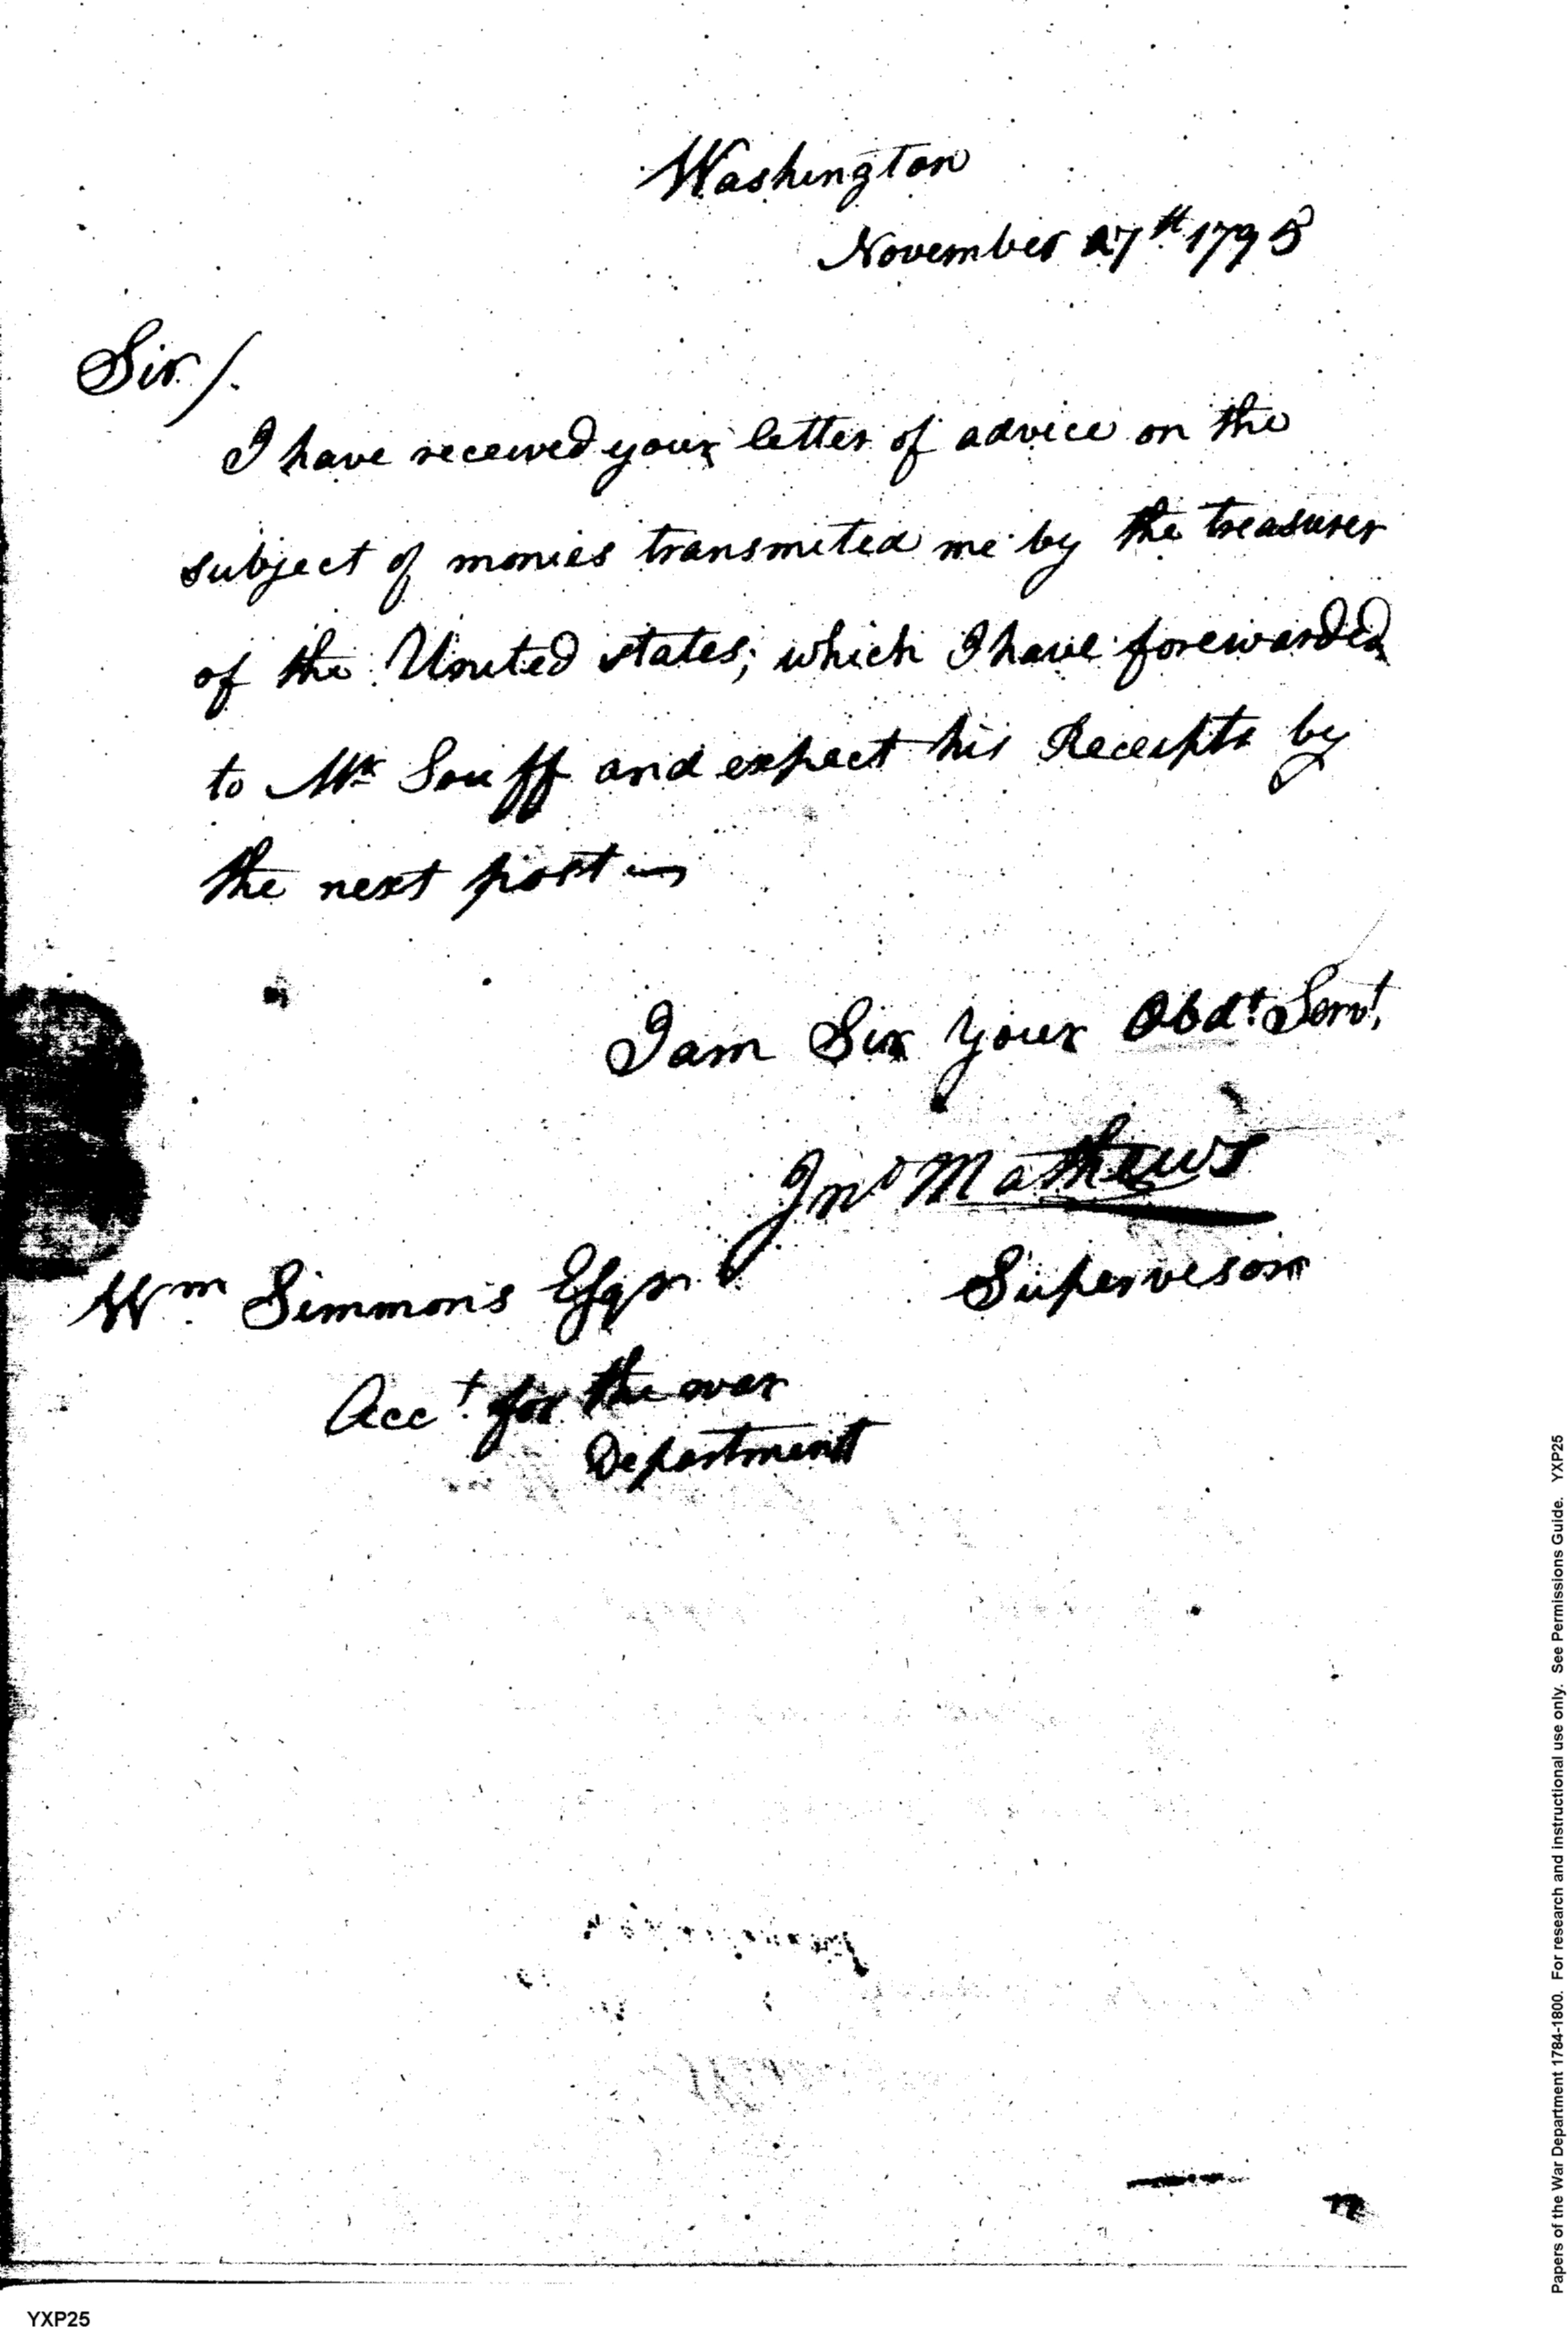 Washington
November 27th 1795
Sir /.
I have received your letter of advice on the
subject of monies transmited me by the treasurer
of the United states; which I have forewarded
to Mr Souff and expect his Receipts by
the next post
I am Sir your Obdt. Servt.
Jno Mathews
Supervesor
Wm Simmons Esqr
Acct. for the war
Department
Papers of the War Department 1784-1800. For research and instructional use only. See Permissions Guide. YXP25
YXP25